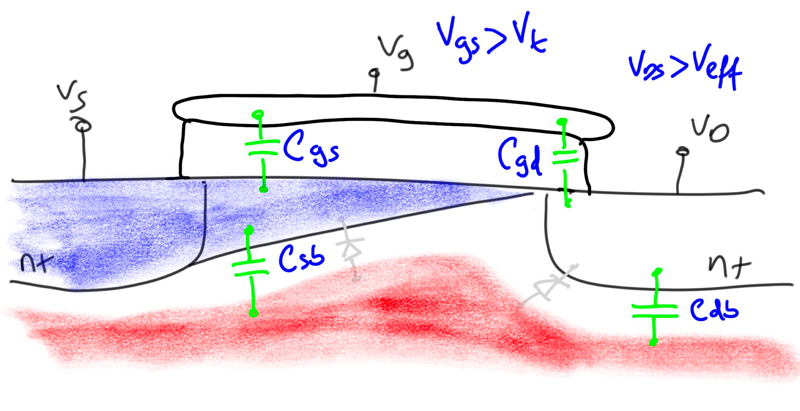 Vg
Vgs > Vt
Vs
VDS > Veff
VD
Cgs
Cgd
n+
Csb
n+
Cdb